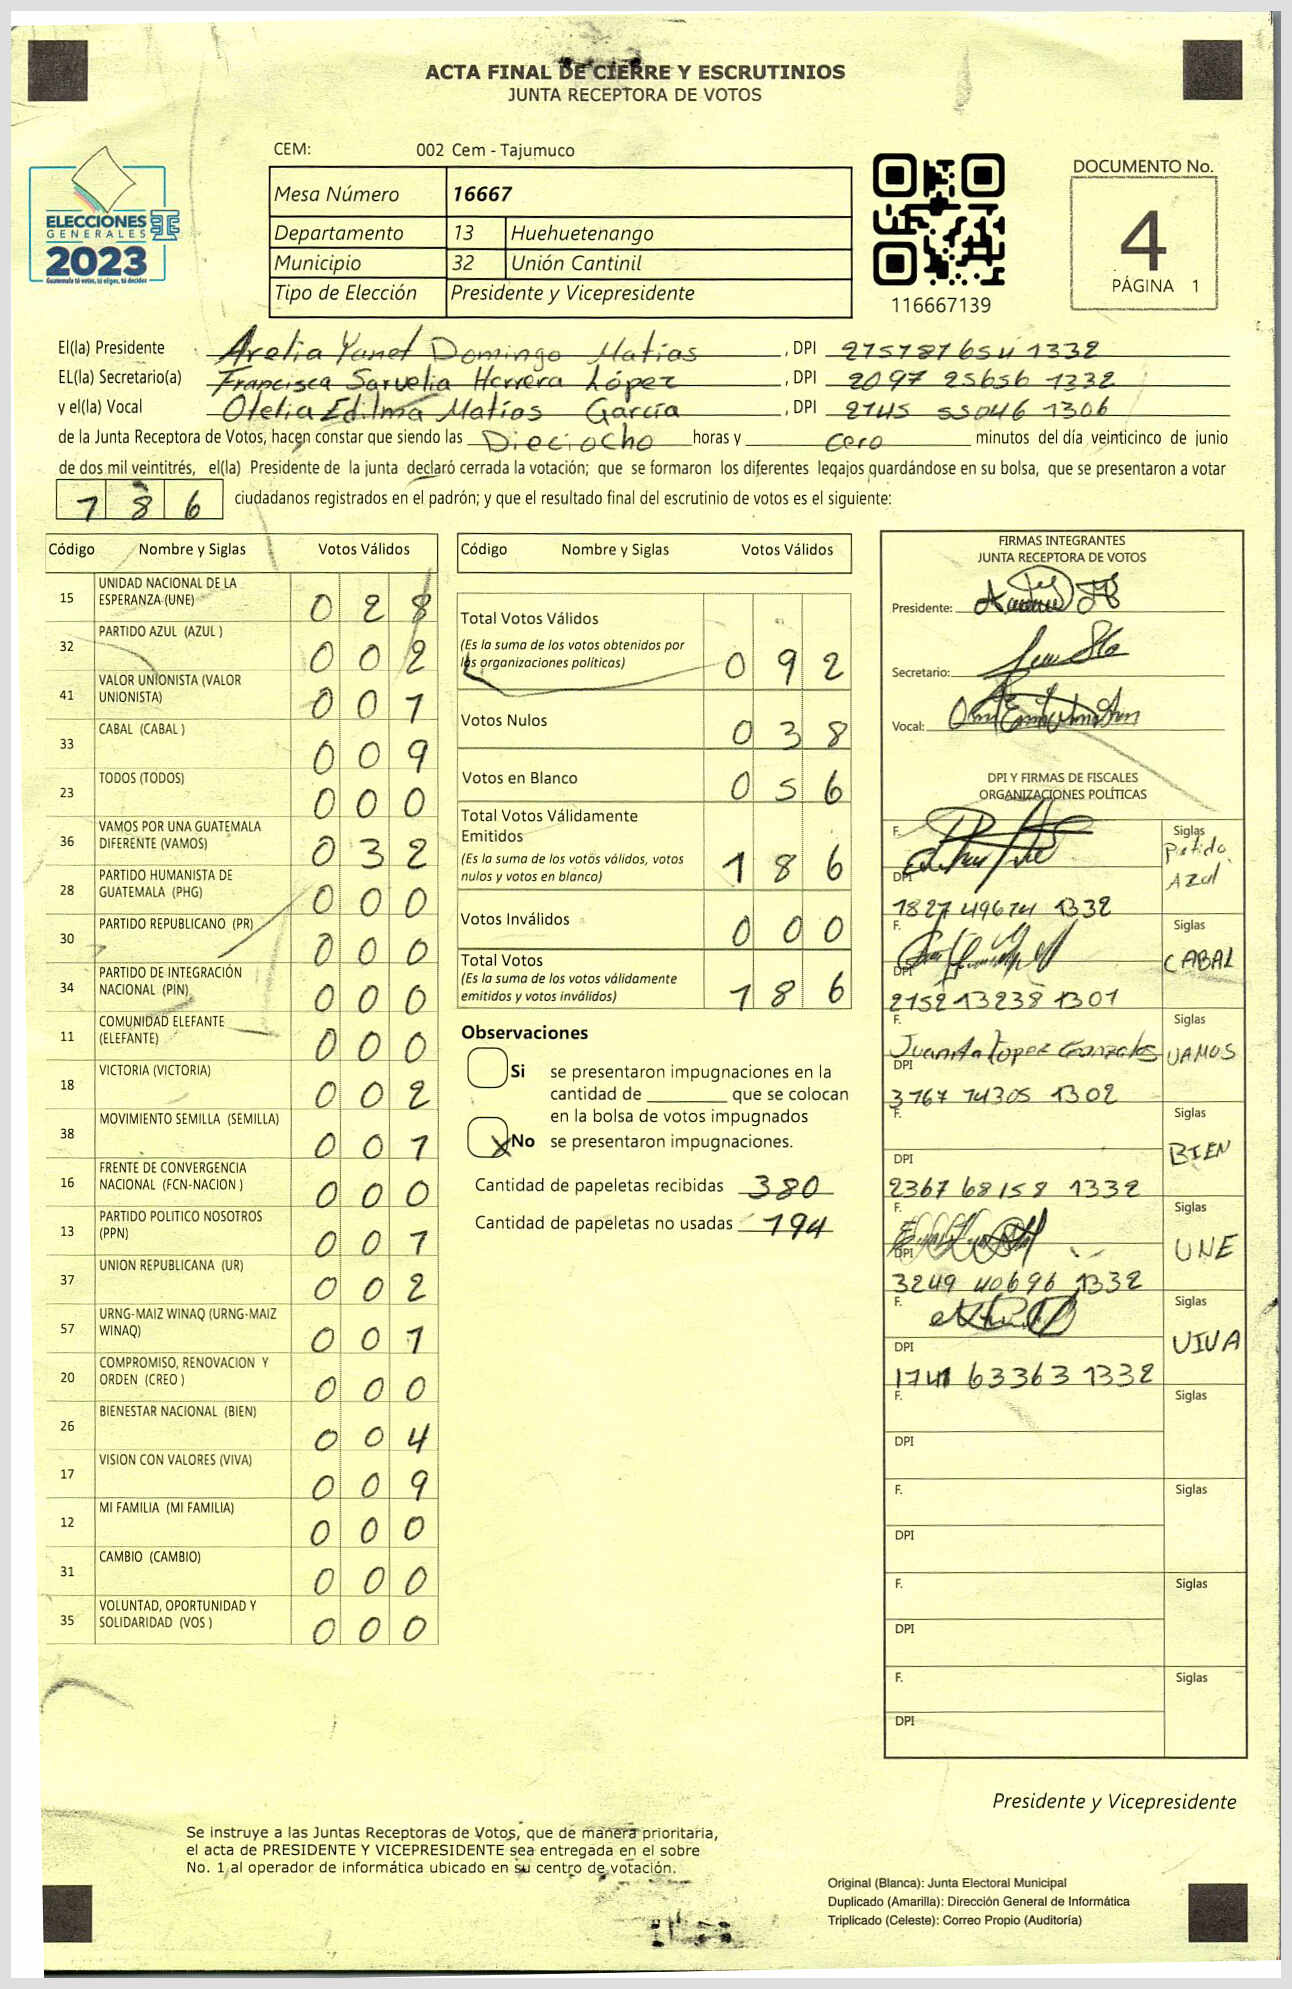 ACTA FINAL DE CIERRE Y ESCRUTINIOS
JUNTA RECEPTORA DE VOTOS
CEM: 002 Cem - Tajumuco
ELECCIONES
GENERALES
2023
Guatemala tú votas, tú eliges, tú decides
Mesa Número 16667
Departamento 13 Huehuetenango
Municipio 32 Unión Cantinil
Tipo de Elección Presidente y Vicepresidente
116667139
DOCUMENTO No.
4
PÁGINA 1
El(la) Presidente Arelia Yanet Domingo Matías , DPI 2757876541332
EL(la) Secretario(a) Francisca Sarvelia Herrera López , DPI 2097 25656 1332
y el(la) Vocal Otelia Edilma Matías García , DPI 2745 55046 1306
de la Junta Receptora de Votos, hacen constar que siendo las Dieciocho horas y cero minutos del día veinticinco de junio
de dos mil veintitrés, el(la) Presidente de la junta declaró cerrada la votación; que se formaron los diferentes legajos guardándose en su bolsa, que se presentaron a votar
186 ciudadanos registrados en el padrón; y que el resultado final del escrutinio de votos es el siguiente:
Código Nombre y Siglas Votos Válidos
15 UNIDAD NACIONAL DE LA
ESPERANZA (UNE) 0 2 8
32 PARTIDO AZUL (AZUL ) 0 0 2
41 VALOR UNIONISTA (VALOR
UNIONISTA) 0 0 1
33 CABAL (CABAL ) 0 0 9
23 TODOS (TODOS) 0 0 0
36 VAMOS POR UNA GUATEMALA
DIFERENTE (VAMOS) 0 3 2
28 PARTIDO HUMANISTA DE
GUATEMALA (PHG) 0 0 0
30 PARTIDO REPUBLICANO (PR) 0 0 0
34 PARTIDO DE INTEGRACIÓN
NACIONAL (PIN) 0 0 0
11 COMUNIDAD ELEFANTE
(ELEFANTE) 0 0 0
18 VICTORIA (VICTORIA) 0 0 2
38 MOVIMIENTO SEMILLA (SEMILLA) 0 0 1
16 FRENTE DE CONVERGENCIA
NACIONAL (FCN-NACION ) 0 0 0
13 PARTIDO POLITICO NOSOTROS
(PPN) 0 0 1
37 UNION REPUBLICANA (UR) 0 0 2
57 URNG-MAIZ WINAQ (URNG-MAIZ
WINAQ) 0 0 1
20 COMPROMISO, RENOVACION Y
ORDEN (CREO ) 0 0 0
26 BIENESTAR NACIONAL (BIEN) 0 0 4
17 VISION CON VALORES (VIVA) 0 0 9
12 MI FAMILIA (MI FAMILIA) 0 0 0
31 CAMBIO (CAMBIO) 0 0 0
35 VOLUNTAD, OPORTUNIDAD Y
SOLIDARIDAD (VOS ) 0 0 0
Código Nombre y Siglas Votos Válidos
Total Votos Válidos
(Es la suma de los votos obtenidos por
las organizaciones políticas) 0 9 2
Votos Nulos 0 3 8
Votos en Blanco 0 5 6
Total Votos Válidamente
Emitidos
(Es la suma de los votos válidos, votos
nulos y votos en blanco) 1 8 6
Votos Inválidos 0 0 0
Total Votos
(Es la suma de los votos válidamente
emitidos y votos inválidos) 1 8 6
Observaciones
Si se presentaron impugnaciones en la
cantidad de ________ que se colocan
en la bolsa de votos impugnados
X No se presentaron impugnaciones.
Cantidad de papeletas recibidas 380
Cantidad de papeletas no usadas 194
FIRMAS INTEGRANTES
JUNTA RECEPTORA DE VOTOS
Presidente:
Secretario:
Vocal:
DPI Y FIRMAS DE FISCALES
ORGANIZACIONES POLÍTICAS
F. Siglas Partido
Azul
DPI 1827 49674 1332
F. Siglas CABAL
DPI 2152 13238 1301
F. Juanita López Gonzales Siglas VAMOS
DPI 3767 74305 1302
F. Siglas BIEN
DPI 2367 68158 1332
F. Siglas UNE
DPI 3249 40696 1332
F. Siglas VIVA
DPI 1741 63363 1332
F. Siglas
DPI
F. Siglas
DPI
F. Siglas
DPI
F. Siglas
DPI
Presidente y Vicepresidente
Se instruye a las Juntas Receptoras de Votos, que de manera prioritaria,
el acta de PRESIDENTE Y VICEPRESIDENTE sea entregada en el sobre
No. 1 al operador de informática ubicado en su centro de votación.
Original (Blanca): Junta Electoral Municipal
Duplicado (Amarilla): Dirección General de Informática
Triplicado (Celeste): Correo Propio (Auditoría)